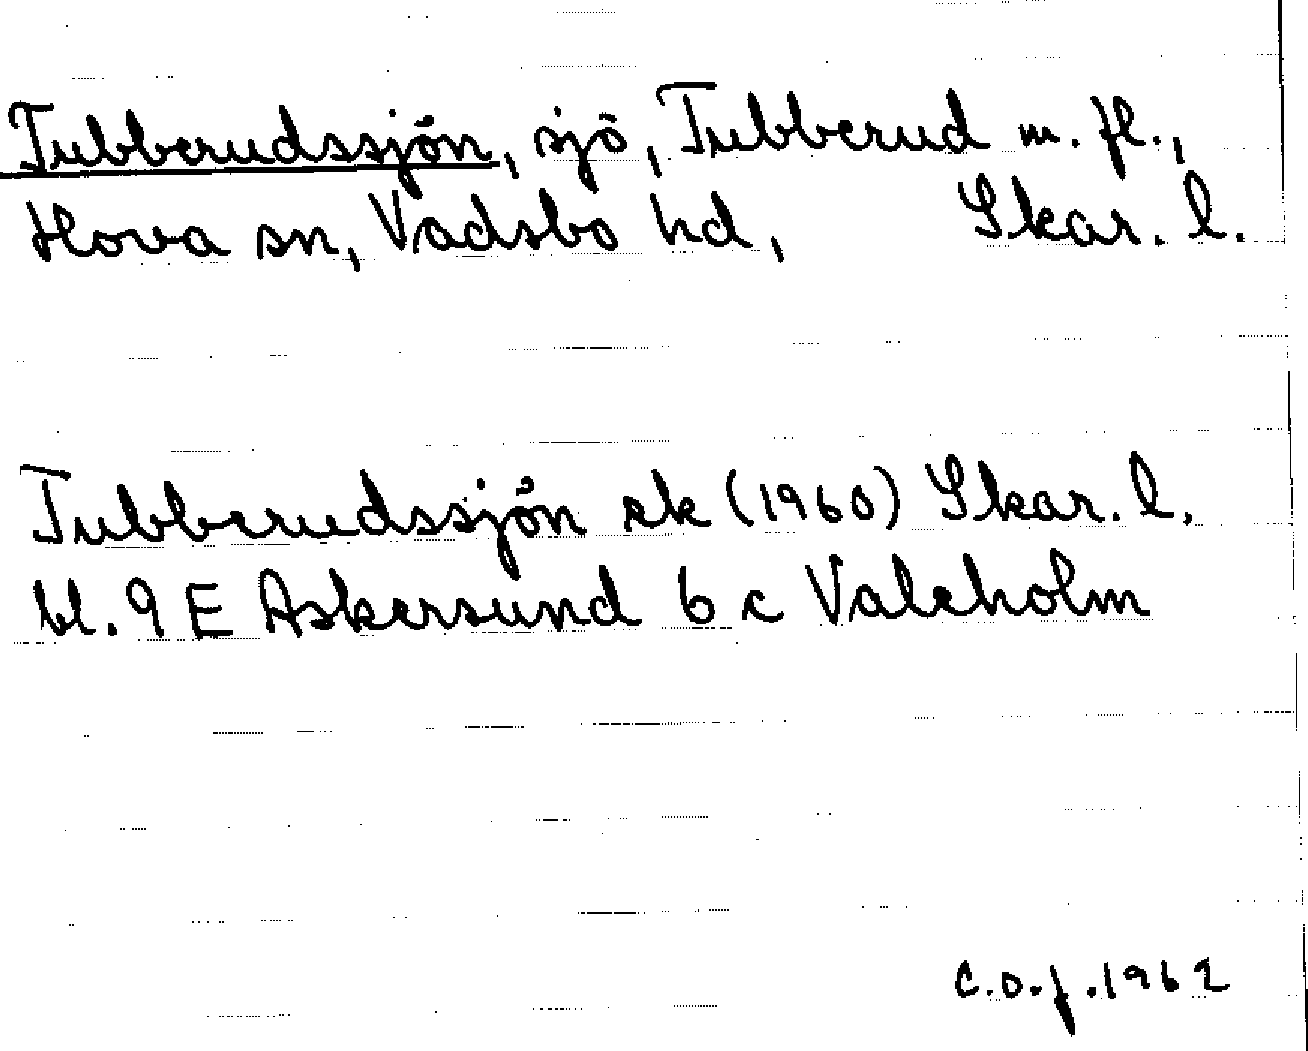 Tubberudssjön, sjö, Tubberud m. fl.,
Hova sn, Vadsbo hd, Skar. l.
Tubberudssjön ek (1960) Skar. l.
bl. 9 E Askersund 6 c Valeholm
C.O.f. 1962